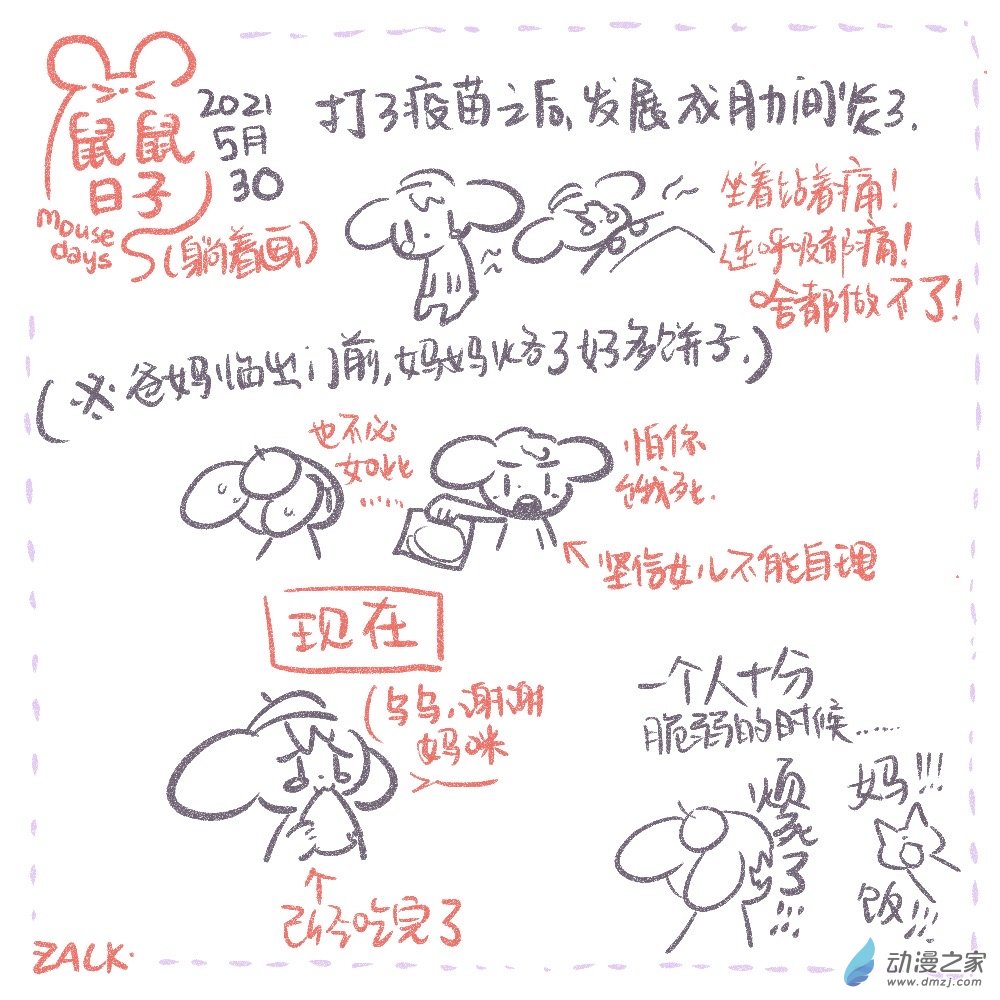 鼠鼠
日子
mouse
days
2021
5月
30
(躺着画)
打了疫苗之后,发展成肋间炎了.
坐着站着痛!
连呼吸都痛!
啥都做不了!
(※爸妈临出门前,妈妈烙了好多饼子.)
也不必
如此
……
怕你
饿死.
坚信女儿不能自理
现在
(呜呜,谢谢
妈咪
已经吃完了
一个人十分
脆弱的时候……
烦死了!!!
妈!!!
饭!!!
ZALK.
动漫之家
www.dmzj.com